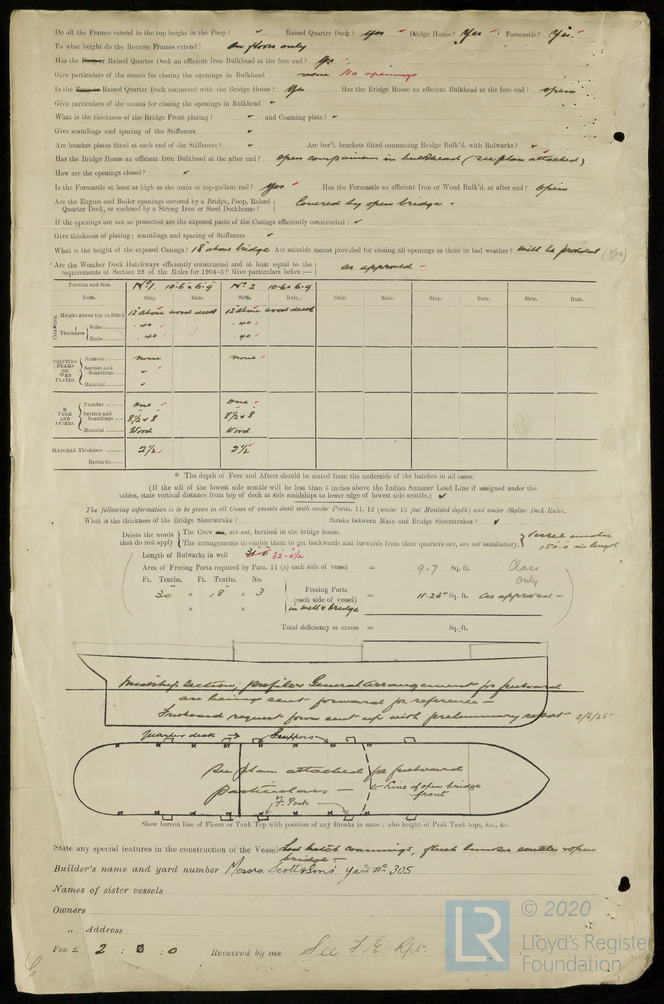 Do all the Frames extend to the top height in the Poop? Raised Quarter Deck? Yes Bridge House? Yes Forecastle? Yes
To what height do the Reverse Frames extend? On floors only
Has the Poop or Raised Quarter Deck an efficient Iron Bulkhead at the fore end? Yes
Give particulars of the means for closing the openings in Bulkhead none No openings
Is the Poop or Raised Quarter Deck connected with the Bridge House? Yes Has the Bridge House an efficient Bulkhead at the fore end? open
Give particulars of the means for closing the openings in Bulkhead
What is the thickness of the Bridge Front plating? and Coaming plate?
Give scantlings and spacing of the Stiffeners
Are bracket plates fitted at each end of the Stiffeners? Are hor'l. brackets fitted connecting Bridge Bulk'd. with Bulwarks?
Has the Bridge House an efficient Iron Bulkhead at the after end? open companion in bulkhead (see plan attached)
How are the openings closed?
Is the Forecastle at least as high as the main or top-gallant rail? Yes Has the Forecastle an efficient Iron or Wood Bulk'd. at after end? open
Are the Engine and Boiler openings covered by a Bridge, Poop, Raised Quarter Deck, or enclosed by a Strong Iron or Steel Deckhouse? Covered by open bridge.
If the openings are not so protected are the exposed parts of the Casings efficiently constructed?
Give thickness of plating; scantlings and spacing of Stiffeners
What is the height of the exposed Casings? 18" above bridge Are suitable means provided for closing all openings in them in bad weather? will be provided
Are the Weather Deck Hatchways efficiently constructed and at least equal to the
requirements of Section 28 of the Rules for 1904-5? Give particulars below:— as approved
Position and Size. No. 1. 10-6 x 6-9 No. 2 10-6 x 6-9
Item. Ship. Rule. Ship. Rule. Ship. Rule. Ship. Rule. Ship. Rule.
COAMING Height above top of DECK 12" above wood deck 12" above wood deck
Thickness Sides .40 .40
Ends .40 .40
SHIFTING BEAMS OR WEB PLATES Number none none
Section and Scantlings "
Material "
* FORE AND AFTERS Number one one
Section and Scantlings 8½ x 8 8½ x 8
Material Wood Wood
HATCHES Thickness 2½ 2½
Remarks
* The depth of Fore and Afters should be stated from the underside of the hatches in all cases.
(If the sill of the lowest side scuttle will be less than 6 inches above the Indian Summer Load Line if assigned under the
tables, state vertical distance from top of deck at side amidships to lower edge of lowest side scuttle.)
The following information is to be given in all Cases of vessels dealt with under Paras. 11, 12 (under 15 feet Moulded depth) and under Shelter Deck Rules.
What is the thickness of the Bridge Sheerstrake? Strake between Main and Bridge Sheerstrakes?
Delete the words that do not apply The Crew are, are not, berthed in the bridge house.
The arrangements to enable them to get backwards and forwards from their quarters are, are not, satisfactory. Vessel under 150.0 in length
Length of Bulwarks in well 32-0½
Area of Freeing Ports required by Para. 11 (e) each side of vessel = 9.7 Sq. ft. Class Only
Ft. Tenths. Ft. Tenths. No.
30" x 18" x 3 Freeing Ports (each side of vessel) in well & bridge = 11.25 Sq. ft. as approved
x x
Total deficiency or excess = Sq. ft.
Midship Section, profile & General arrangement for freeboard
are being sent forward for reference
Freeboard request form sent up with preliminary report 8/6/25
Quarter deck Scuppers
See plan attached for freeboard
particulars Line of open bridge front
F. Ports
Show hereon line of Floors or Tank Top with position of any Breaks in same; also height of Peak Tank tops, &c., &c.
State any special features in the construction of the Vessel Low hatch coamings, flush bunker scuttles & open
bridge
Builder's name and yard number Messrs. Scott & Sons Yard No. 305
Names of sister vessels
Owners
" Address
Fee £ 2 : 0 : 0 Received by me See F. E. Rpt.
LR
© 2020
Lloyd's Register
Foundation